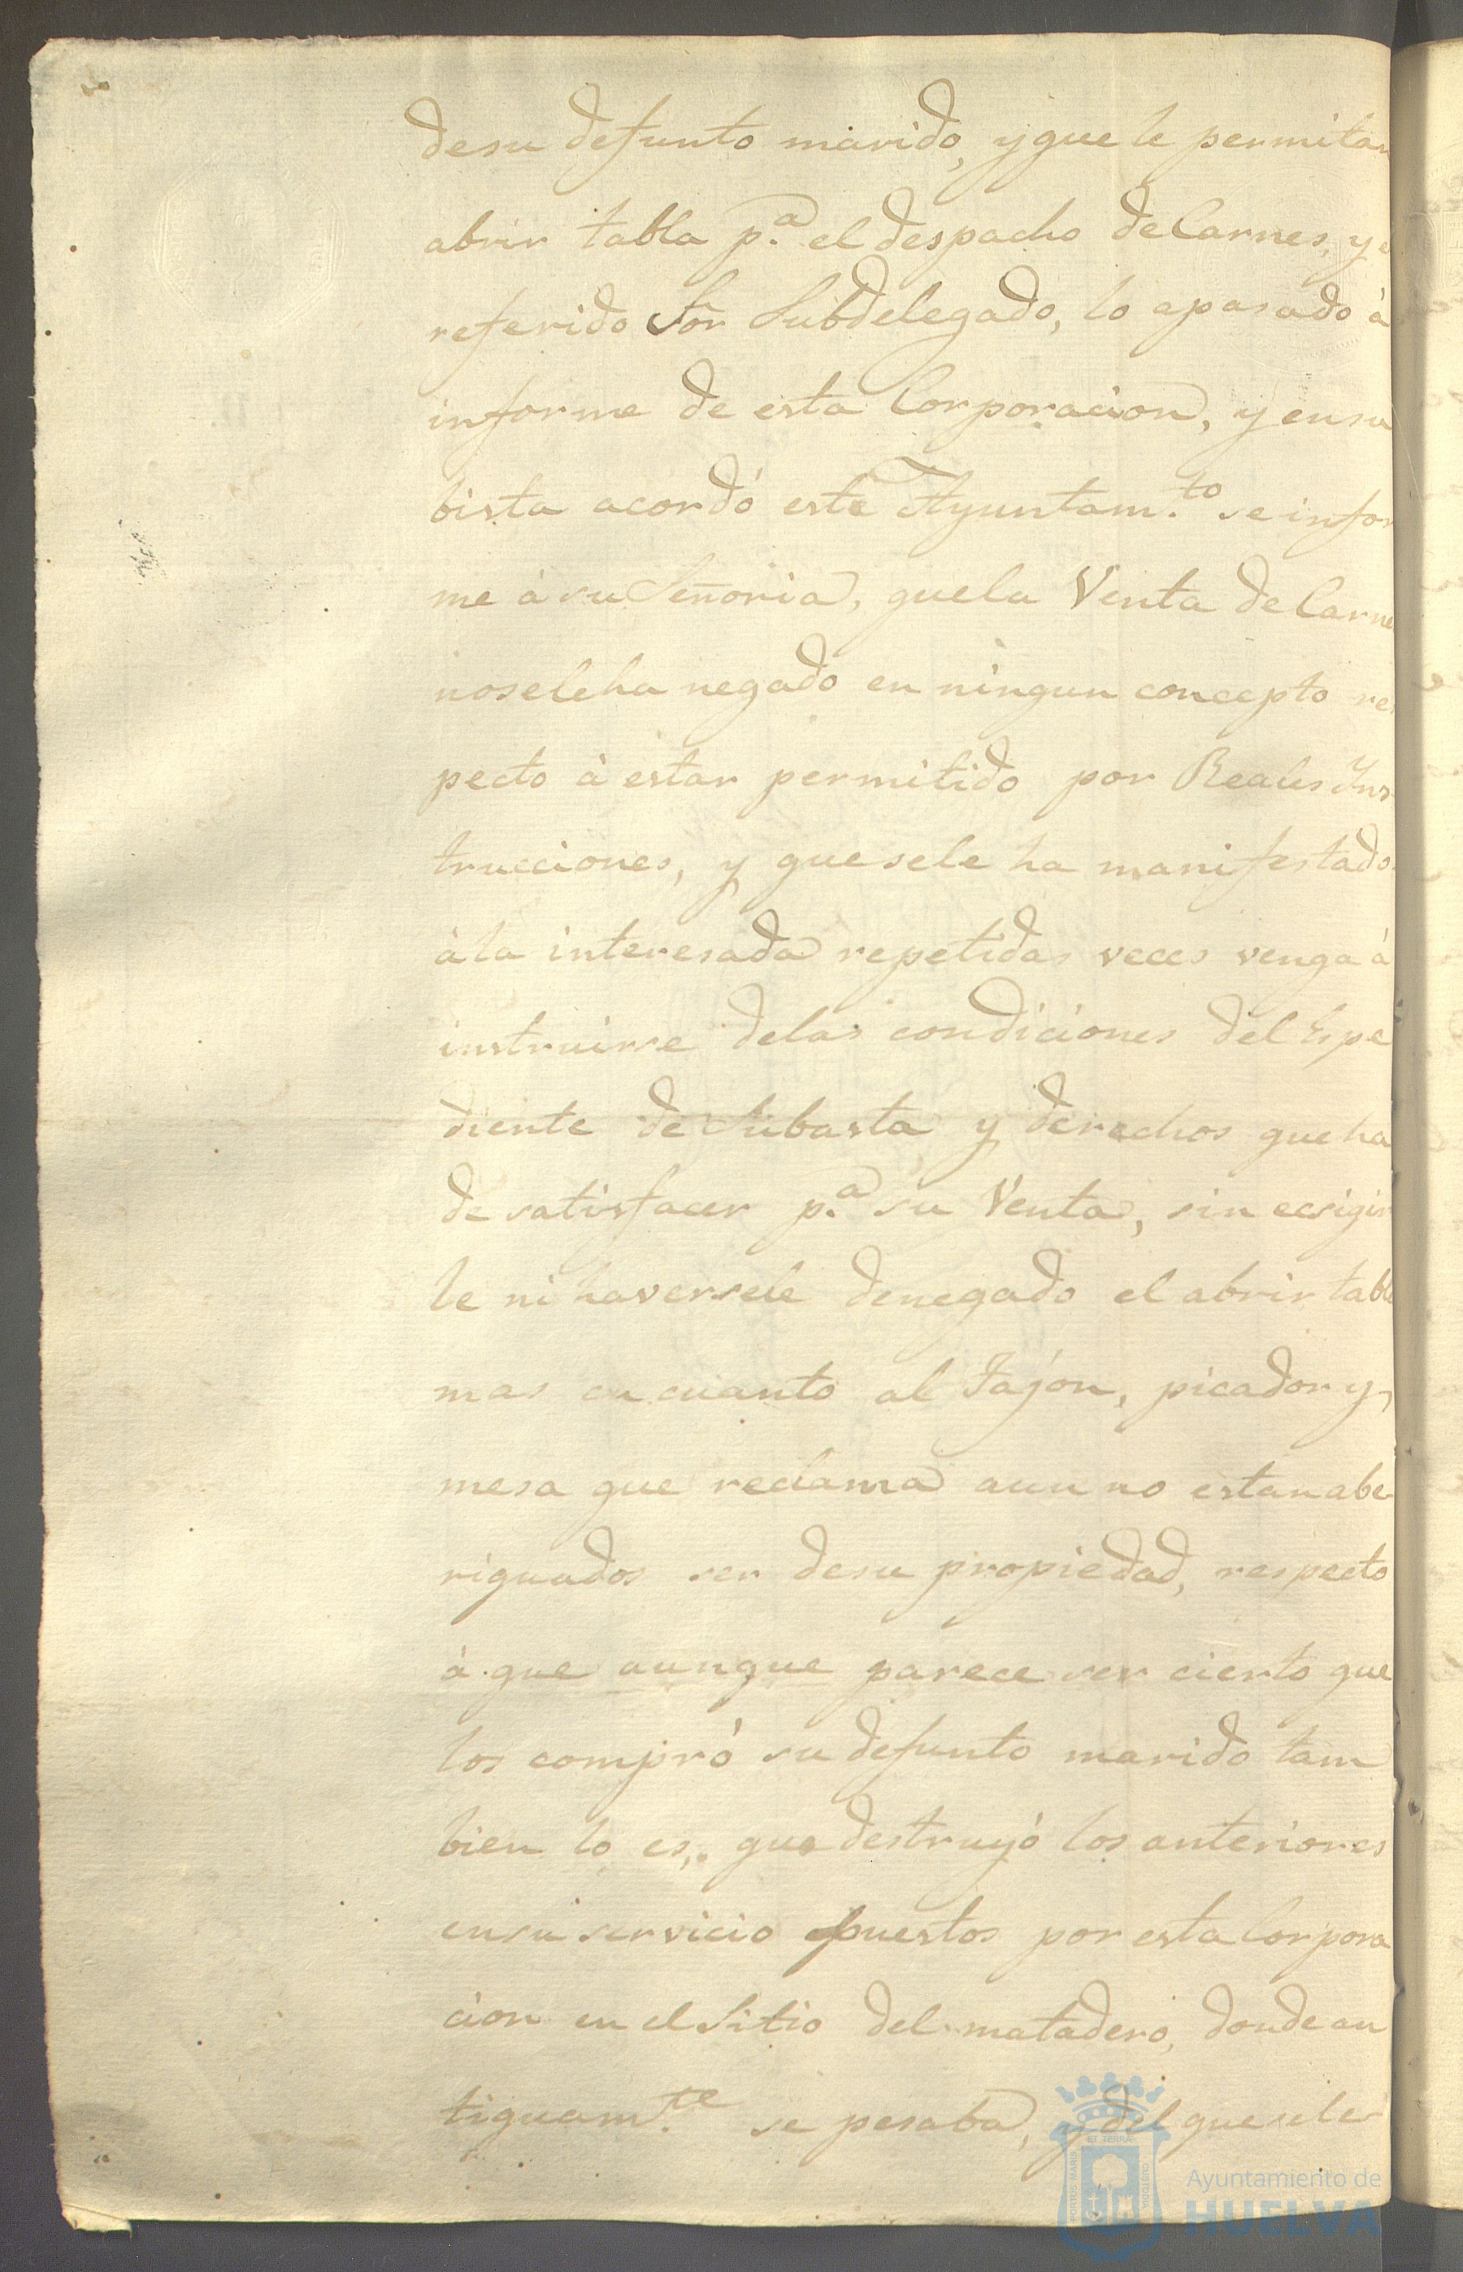 desu defunto marido, y que le permitan
abrir tabla p.ª el despacho de Carnes, y e
referido Sor Subdelegado, lo apasado à
informe de esta Corporacion, y en su
bista acordó este Ayuntam.to se infor
me à su Señoria, que la Venta de Carne
nosele ha negado en ningun concepto res
pecto à estar permitido por Reales Yns
trucciones, y quesele ha manifestado
à la interesada repetidas veces venga à
instruirse delas condiciones del Espe
diente de Subasta y derechos que ha
de satisfacer p.ª su Venta, sin ecsigir
le ni haversele denegado el abrir tabla
mas en cuanto al Tajón, picador y
mesa que reclama aun no estan abe
riguados ser desu propiedad, respecto
à que aunque parece ser cierto que
los compró su defunto marido tam
bien lo es, que destruyó los anteriores
en su servicio puestos por esta Corpora
cion en el Sitio del matadero, donde an
tiguam.te se pesaba, y del que seles
PORTUS MARIS
ET TERRÆ
CUSTODIA
Ayuntamiento de
HUELVA